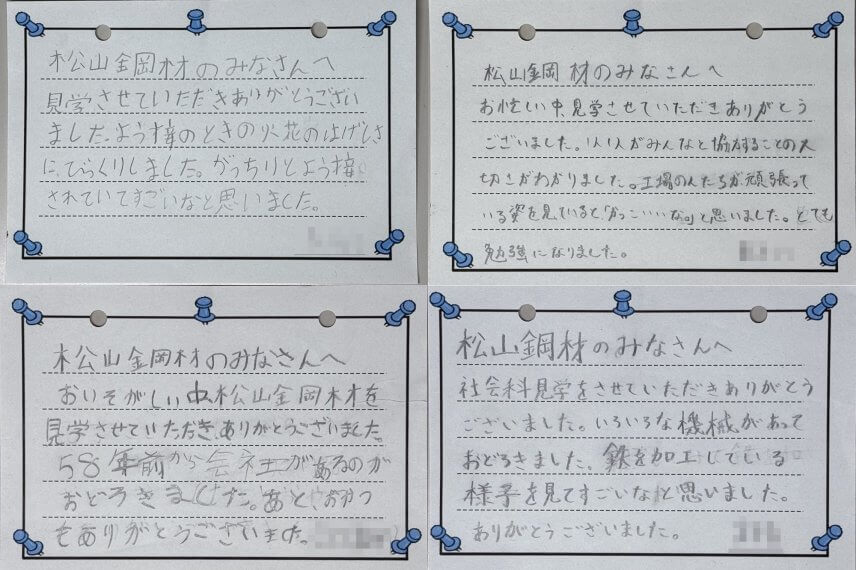 松山鋼材のみなさんへ
見学させていただきありがとうござい
ました。よう接のときの火花のはげしさ
に、びっくりしました。がっちりとよう接
されていてすごいなと思いました。
松山鋼材のみなさんへ
お忙しい中、見学させていただきありがとう
ございました。1人1人がみんなと協力することの大
切さがわかりました。工場の人たちが頑張って
いる姿を見ていると「かっこいいな。」と思いました。とても
勉強になりました。
松山鋼材のみなさんへ
おいそがしい中松山鋼材を
見学させていただき、ありがとうございました。
58年前から会社があるのが
おどろきました。あと、おみやげ
もありがとうございました。
松山鋼材のみなさんへ
社会科見学をさせていただきありがとう
ございました。いろいろな機械があって
おどろきました。鉄を加工している
様子を見てすごいなと思いました。
ありがとうございました。